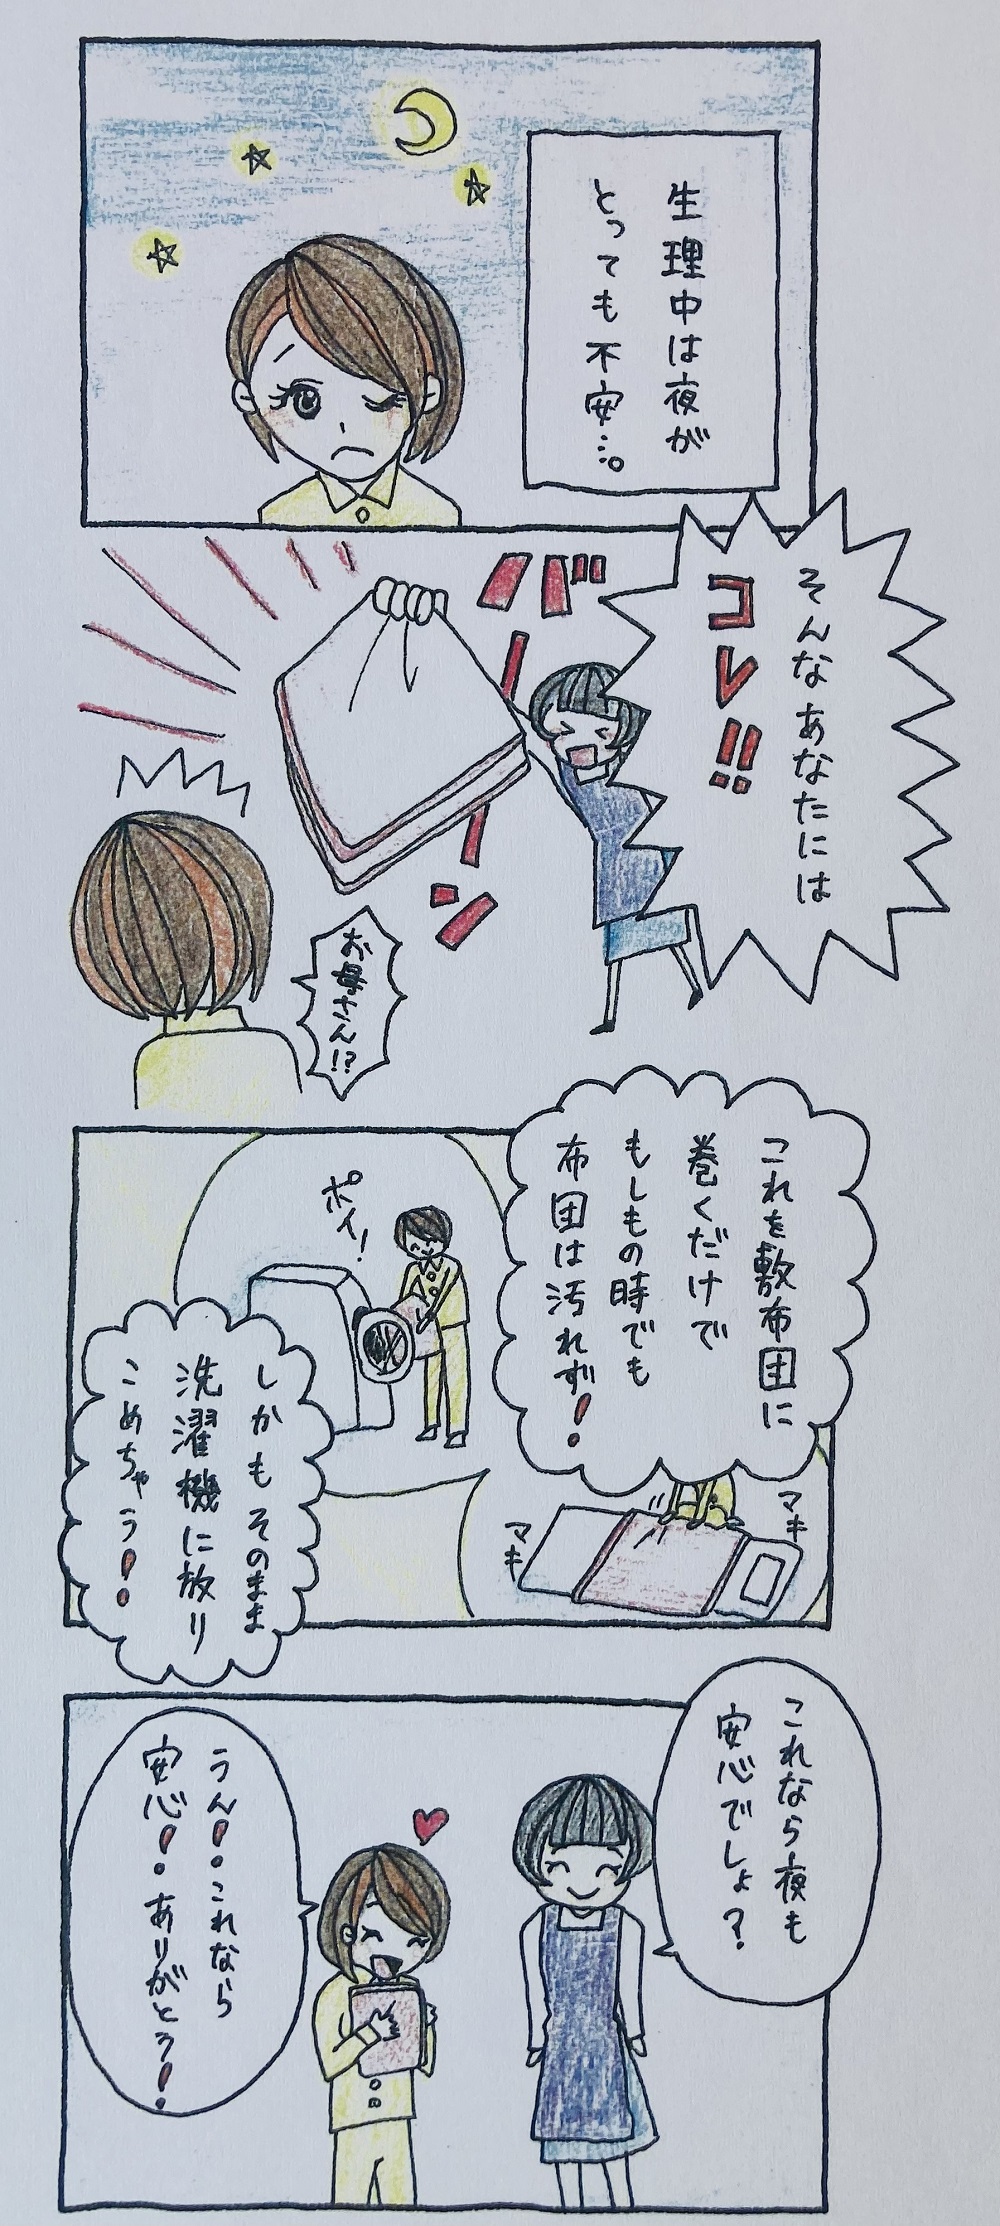 生理中は夜が
とっても不安…。
そんなあなたには
コレ!!
バーン
お母さん!?
これを敷布団に
巻くだけで
もしもの時でも
布団は汚れず!
マキ
マキ
ポイ!
しかもそのまま
洗濯機に放り
こめちゃう!
これなら夜も
安心でしょ?
うん!これなら
安心!ありがとう!